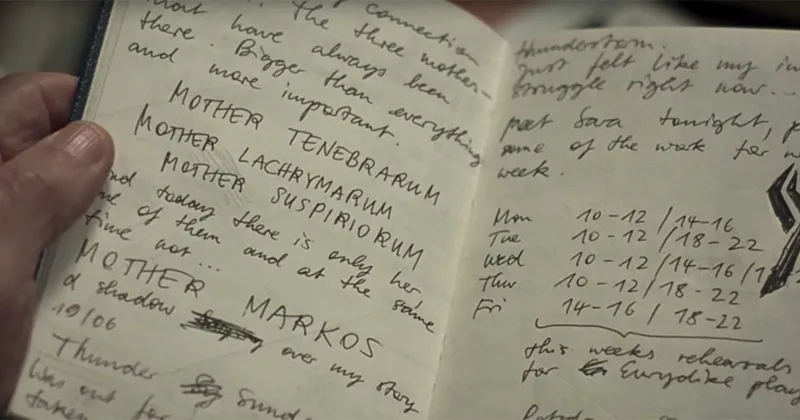 connection
. The three mother-
that have always been
there. Bigger than everything
and more important.
MOTHER TENEBRARUM
MOTHER LACHRYMARUM
MOTHER SUSPIRIORUM
and today there is only her
one of them and at the same
time not...
MOTHER MARKOS
a shadow over my story
19/06
Thunder
was out for
thunderstorm.
just felt like my in
struggle right now...
meet Sara tonight, p
some of the work for
week.
Mon 10-12 / 14-16
Tue 10-12 / 18-22
Wed 10-12 / 14-16 / 1
Thur 10-12 / 18-22
Fri 14-16 / 18-22
this weeks rehearsals
for Eurydike play